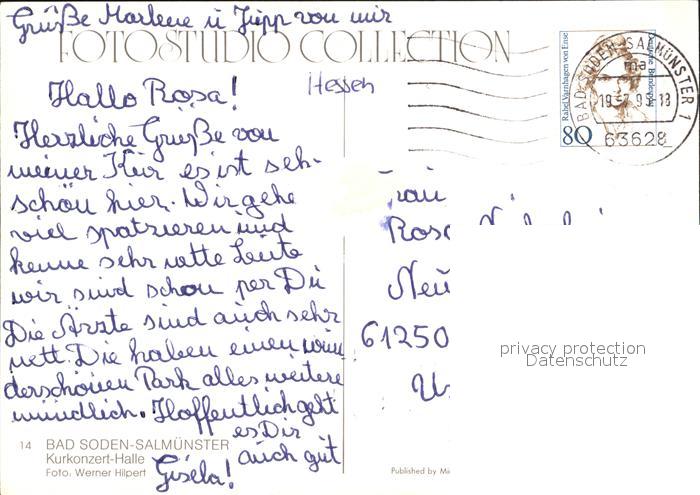 Grüße Marlene u Jupp von mir
FOTOSTUDIO COLLECTION
Hessen
Hallo Rosa!
Herzliche Grüße von
meiner Kur es ist seh-
schön hier. Wir gehe
viel spatzieren und
kenne sehr nette Leute
wir sind schon per Du
Die Ärzte sind auch sehr
nett. Die haben einen wun
derschönen Park alles weitere
mündlich. Hoffentlich geht
es Dir
auch gut
Gisela!
14 BAD SODEN-SALMÜNSTER
Kurkonzert-Halle
Foto: Werner Hilpert
Published by
Rahel Varnhagen von Ense
Deutsche Bundespost
80
BAD SODEN-SALMÜNSTER 1
ma
63628
61250
privacy protection
Datenschutz